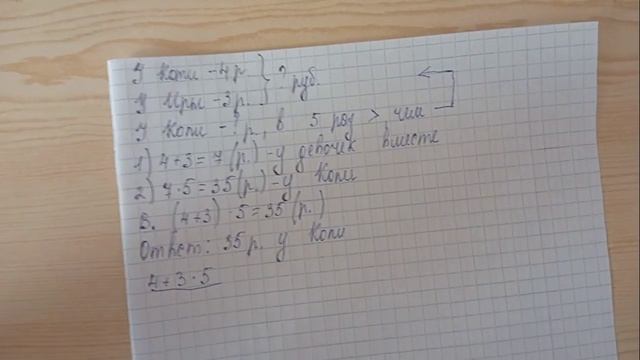 У Кати - 4 р. } ? руб.
У Иры - 3 р.
У Коли - ? р., в 5 раз > чем
1) 4+3=7 (р.) - у девочек вместе
2) 7·5=35 (р.) - у Коли
В. (4+3)·5=35 (р.)
Ответ: 35 р. у Коли
4+3·5